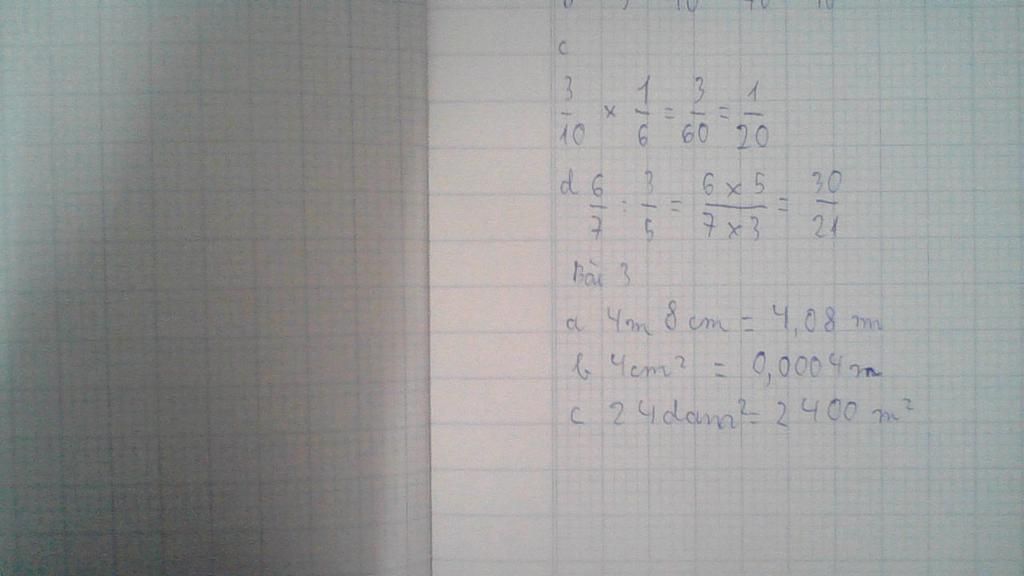 c
3/10 × 1/6 = 3/60 = 1/20
d 6/7 : 3/5 = 6 × 5/7 × 3 = 30/21
Bài 3
a 4m 8cm = 4,08 m
b 4cm² = 0,0004m
c 24dam² = 2400 m²